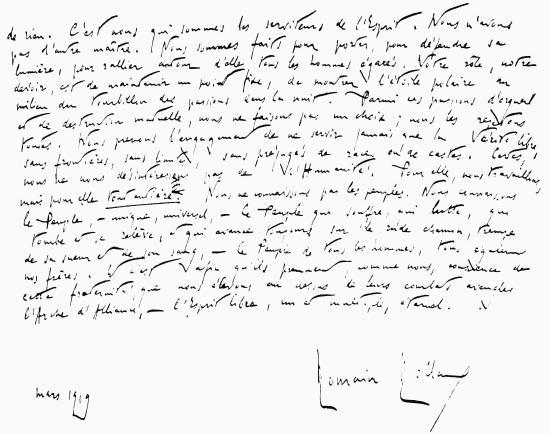 de rien. C'est nous qui sommes les serviteurs de l'Esprit. Nous n'avons
pas d'autre maître. Nous sommes faits pour porter, pour défendre sa
lumière, pour rallier autour d'elle tous les hommes égarés. Notre rôle, notre
devoir, est de maintenir un point fixe, de montrer l'étoile polaire au
milieu du tourbillon des passions dans la nuit. Parmi ces passions d'orgueil
et de destruction mutuelle, nous ne faisons pas un choix; nous les rejetons
toutes. Nous prenons l'engagement de ne servir jamais que la Vérité libre,
sans frontières, sans limites, sans préjugés de races ou de castes. Certes,
nous ne nous désintéressons pas de l'Humanité. Pour elle, nous travaillons,
mais pour elle tout entière. Nous ne connaissons pas les peuples. Nous connaissons
le Peuple, – unique, universel, – le Peuple qui souffre, qui lutte, qui
tombe et se relève, et qui avance toujours sur le rude chemin, trempé
de sa sueur et de son sang, – le Peuple de tous les hommes, tous également
nos frères. Et c'est afin qu'ils prennent, comme nous, conscience de
cette fraternité, que nous élevons au dessus de leurs combats aveugles
l'Arche d'Alliance, – l'Esprit libre, un et multiple, éternel.
Romain Rolland
mars 1919